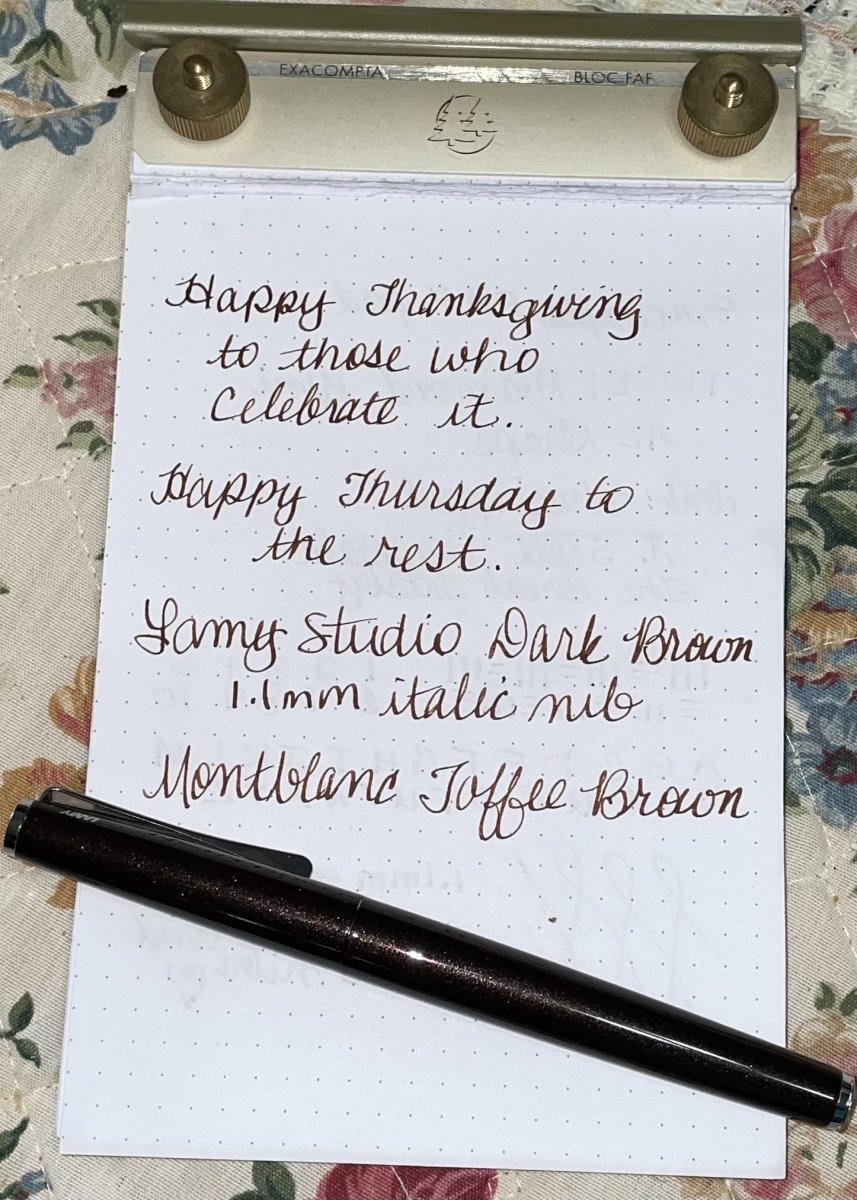 EXACOMPTA BLOC FAF
Happy Thanksgiving
to those who
celebrate it.
Happy Thursday to
the rest.
Lamy Studio Dark Brown
1.1mm italic nib
Montblanc Toffee Brown
LAMY